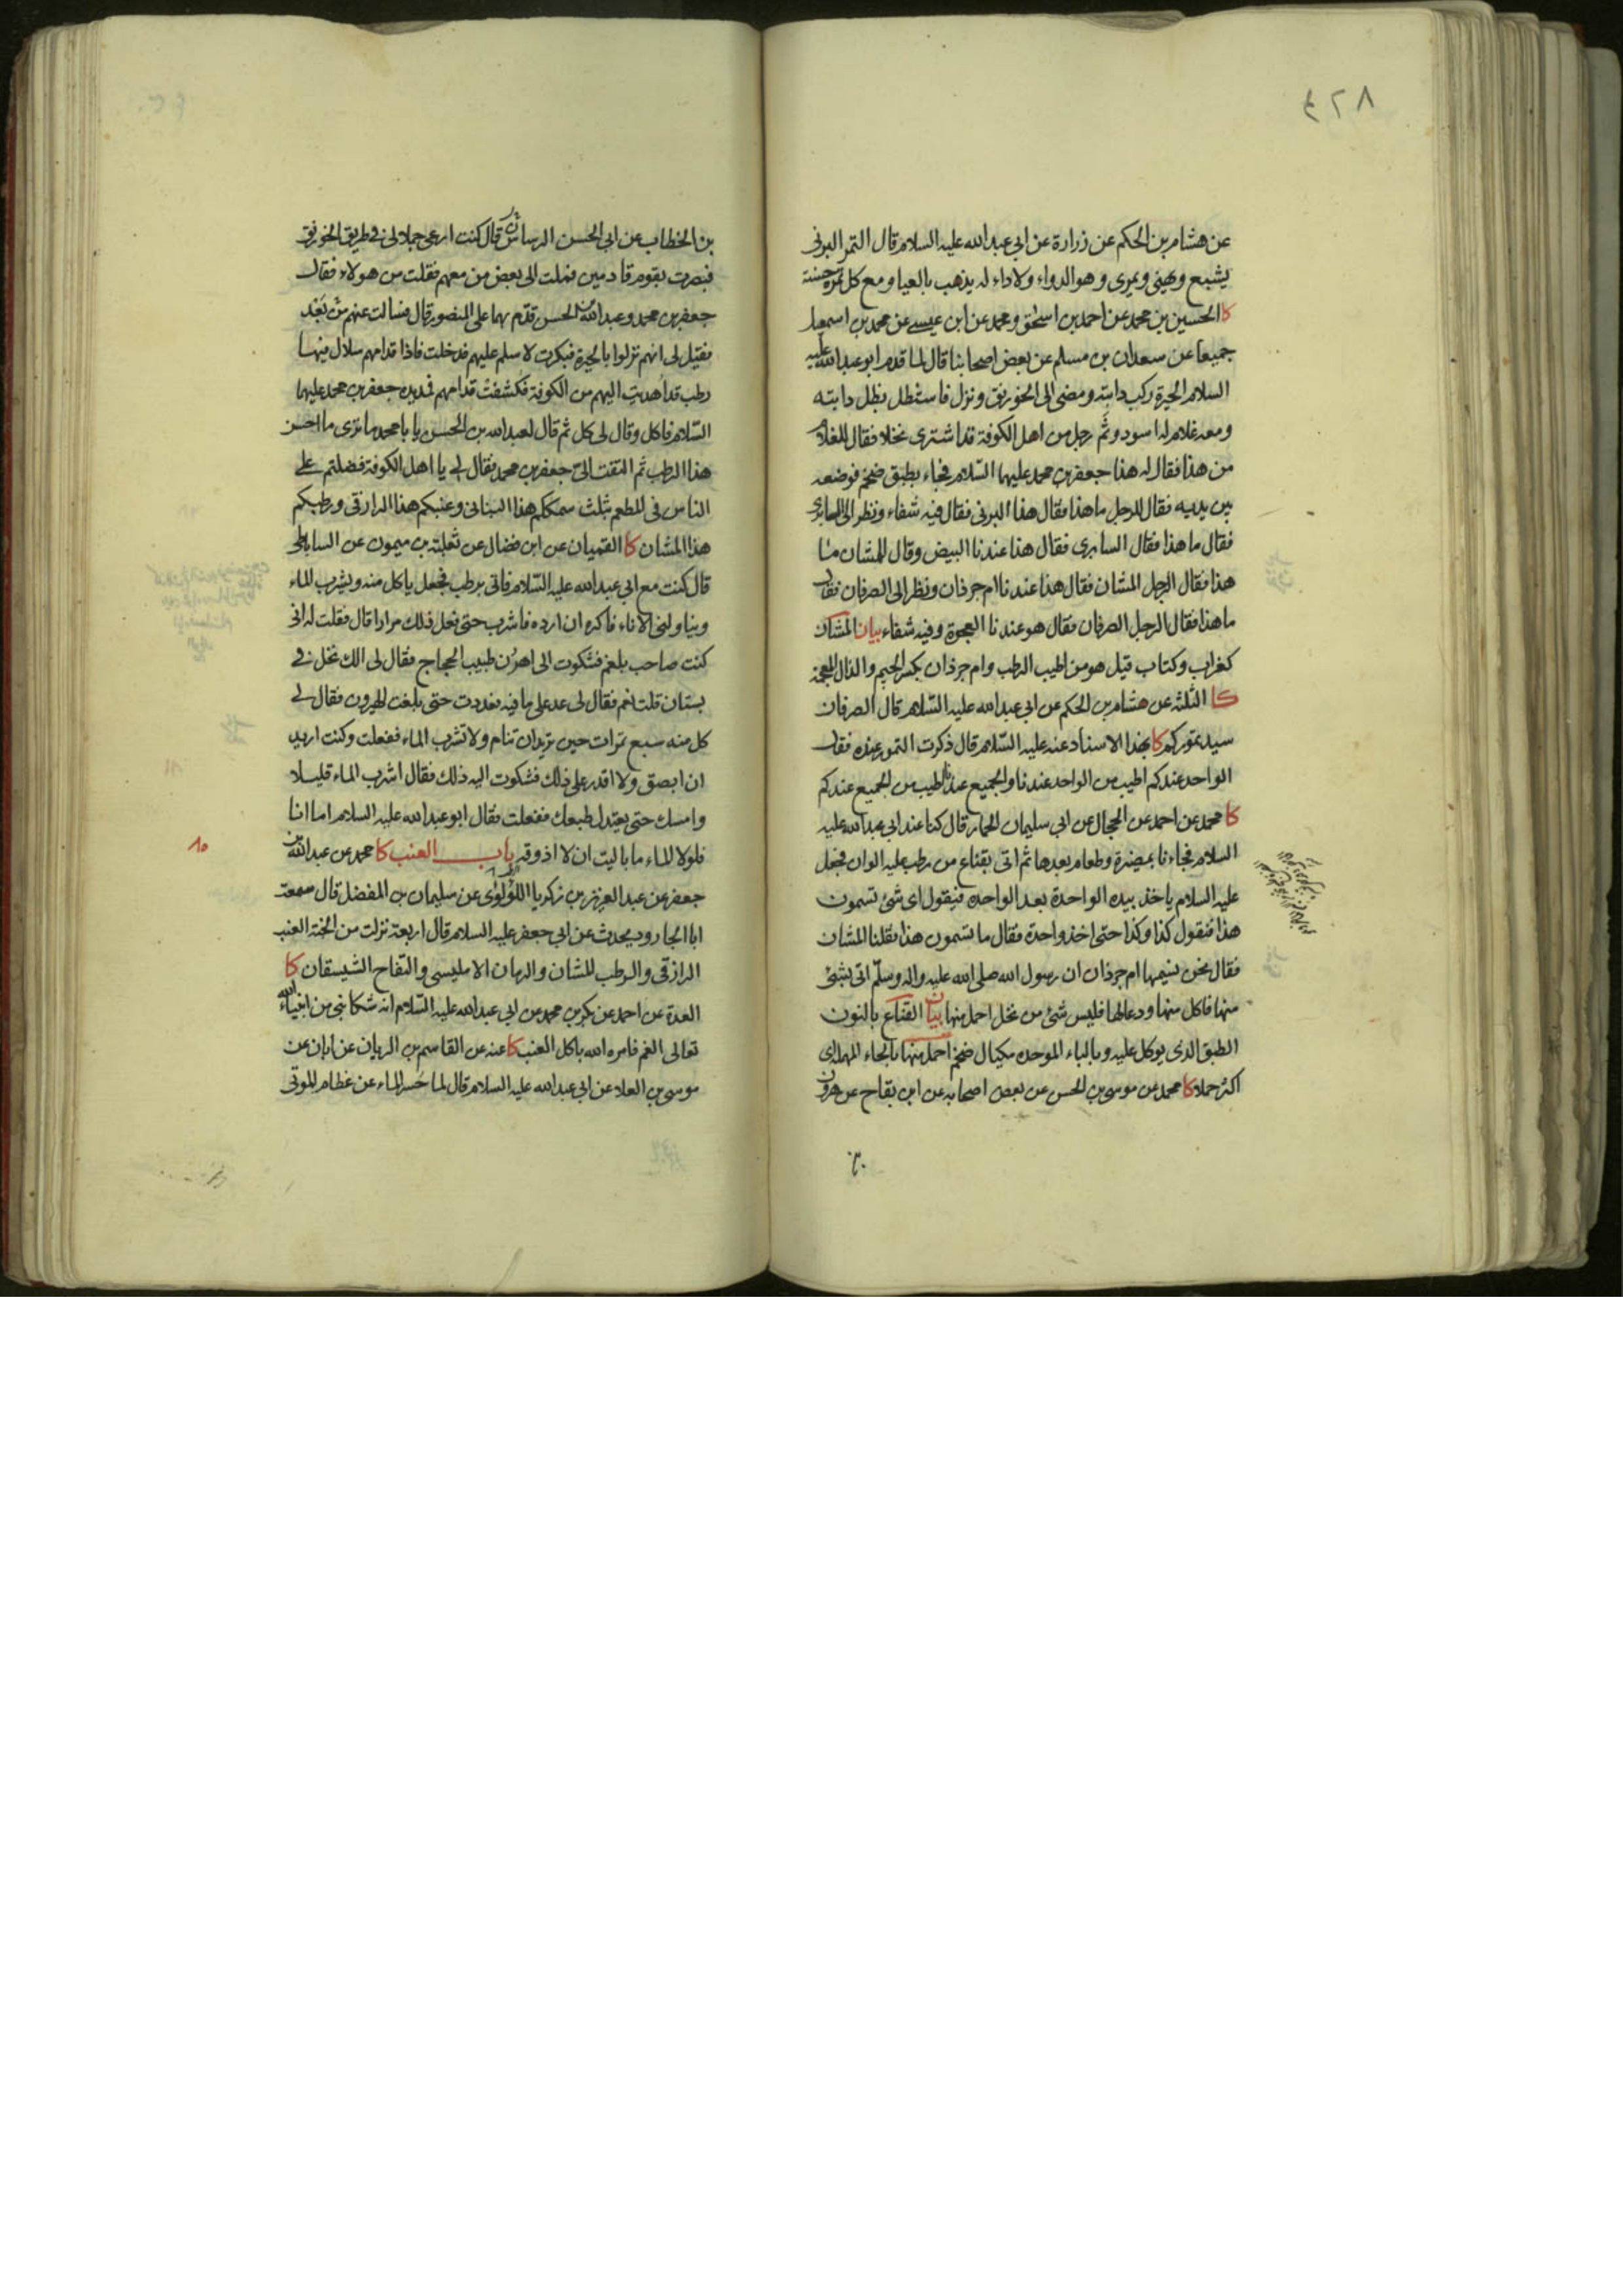 ٤٢٨
عن هشام بن الحكم عن زرارة عن ابي عبدالله عليه السلام قال التمر البرني
يشبع ويهني ويمري وهو الدواء ولا داء له يذهب بالعيا ومع كل تمرة حسنة
كا الحسين بن محمد عن احمد بن اسحق ومحمد عن ابن عيسى عن محمد بن اسمعيل
جميعا عن سعدان بن مسلم عن بعض اصحابنا قال لما قدم ابو عبدالله عليه
السلام الحيرة ركب دابته ومضى الى الخورنق ونزل فاستظل بظل دابته
ومعه غلام له اسود وثَم رجل من اهل الكوفة قد اشترى نخلا فقال للغلام
من هذا فقال له هذا جعفر بن محمد عليهما السّلام فجاء بطبق ضخم فوضعه
بين يديه فقال للرجل ما هذا فقال هذا البرني فقال فيه شفاء ونظر الى السابري
فقال ما هذا فقال السابري فقال هذا عندنا البيض وقال للمشان ما
هذا فقال الرجل المشان فقال هذا عندنا ام جرذان ونظر الى الصرفان فقال
ما هذا فقال الرجل الصرفان فقال هو عندنا العجوة وفيه شفاء بيان المشان
كغراب وكتاب قيل هو من اطيب الرطب وام جرذان بكسر الجيم والذال المعجمة
كا الثلثة عن هشام بن الحكم عن ابي عبدالله عليه السّلام قال الصرفان
سيد تموركم كا بهذا الاسناد عنه عليه السّلام قال ذكرت التمور عنده فقال
الواحد عندكم اطيب من الواحد عندنا والجميع عندنا اطيب من الجميع عندكم
كا محمد عن احمد عن الحجال عن ابي سليمان الحمار قال كنا عند ابي عبدالله عليه
السلام فجاءنا بمضيرة وطعام بعدها ثم اتى بقناع من رطب عليه الوان فجعل
عليه السلام ياخذ بيده الواحدة بعد الواحدة فيقول اى شئ تسمون
هذا فنقول كذا وكذا حتى اخذ واحدة فقال ما تسمون هذا فقلنا المشان
فقال نحن نسيمها ام جرذان ان رسول الله صلى الله عليه واله وسلّم اتى بشئ
منها فاكل منها ودعا لها فليس شئ من نخل احمل منها بيان القناع بالنون
الطبق الذى يوكل عليه وبالباء الموحده مكيال ضخم احمل منها بالحاء المهملة اى
اكثر حملا كا محمد عن موسى بن الحسن عن بعض اصحابه عن ابن بقاح عن هرون
بن الخطاب عن ابي الحسن الرسان قال كنت ارعى جمالا لى فى طريق الخورنق
فبصرت بقوم قادمين فملت الى بعض من معهم فقلت من هولاء فقال
جعفر بن محمد وعبدالله بن الحسن قدم بهما على المنصور قال فسالت عنهم من بَعد
فقيل لى انهم نزلوا بالحيرة فبكرت لاسلم عليهم فدخلت فاذا قدامهم سلال فيها
رطب قد اُهدیت اليهم من الكوفة فكشفت قدامهم فمد يده جعفر بن محمد عليهما
السّلام فاكل وقال لى كل ثم قال لعبدالله بن الحسن يا با محمد ما ترى ما احسن
هذا الرطب ثم التفت الى جعفر بن محمد فقال لى يا اهل الكوفة فضلتم على
الناس فى المطعم بثلث سمككم هذا البناني وعنبكم هذا الرازقى ورطبكم
هذا المشان كا القميان عن ابن فضال عن ثعلبة بن ميمون عن الساباطى
قال كنت مع ابي عبدالله عليه السّلام فاتى برطب فجعل ياكل منه ويشرب الماء
ويناولنى الاناء فاكره ان ارده فاشرب حتى فعل ذلك مرارا قال فقلت له انى
كنت صاحب بلغم فشكوت الى اهرُن طبيب الحجاج فقال لى الك نخل فى
بستان قلت نعم فقال لى عد على ما فيه فعددت حتى بلغت الهيرون فقال لى
كل منه سبع تمرات حين تريد ان تنام ولا تشرب الماء ففعلت وكنت اريد
ان ابصق ولا اقدر على ذلك فشكوت اليه ذلك فقال اشرب الماء قليلا
وامسك حتى يعتدل طبعك ففعلت فقال ابو عبدالله عليه السلام اما انا
فلولا الماء ما باليت ان لا اذوقه باب العنب كا محمد عن عبدالله بن
جعفر عن عبدالعزيز بن زكريا اللؤلؤى عن سليمان بن المفضل قال سمعت
ابا الجارود يحدث عن ابي جعفر عليه السلام قال اربعة نزلت من الجنة العنب
الرازقى والرطب المشان والرمان الامليسى والتفاح الشيسقان كا
العدة عن احمد عن بكر بن محمد عن ابي عبدالله عليه السّلام انه شكا نبى من انبياء الله
تعالى الغم فامره الله باكل العنب كا عنه عن القاسم بن الريان عن ابان عن
موسى بن العلا عن ابي عبدالله عليه السلام قال لما حَسر الماء عن عظام الموتى